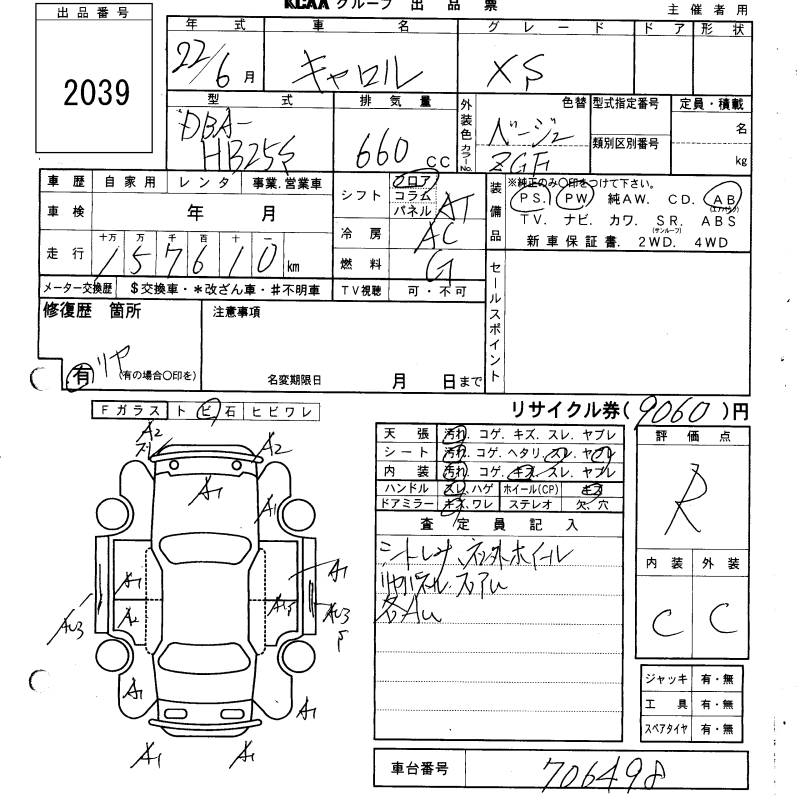 KCAA グループ 出品票
主催者用
出品番号
2039
年式 車名 グレード ドア 形状
22/6月 キャロル XS
型式 排気量 外装色 カラーNo. 色替 型式指定番号 定員・積載
DBA-HB25S 660 CC ベージュ ZGF 類別区別番号 名 kg
車歴 自家用 レンタ 事業.営業車
シフト フロア コラム パネル AT
装備品 ※純正のみ〇印をつけて下さい。
PS. PW 純AW. CD. AB(エアバッグ)
TV. ナビ. カワ. SR.(サンルーフ) ABS
新車保証書. 2WD. 4WD
車検 年 月
冷房 AC
走行 十万 万 千 百 十 一
157610 km
燃料 G
メーター交換歴 $交換車・*改ざん車・#不明車
TV視聴 可・不可
セールスポイント
修復歴 箇所
有 リヤ (有の場合〇印を)
注意事項
名変期限日 月 日まで
リサイクル券(9060)円
Fガラス トビ石 ヒビワレ
天張 汚れ.コゲ.キズ.スレ.ヤブレ
シート 汚れ.コゲ.ヘタリ.スレ.ヤブレ
内装 汚れ.コゲ.キズ.スレ.ヤブレ
ハンドル スレ.ハゲ ホイール(CP) キズ
ドアミラー キズ.ワレ ステレオ 欠.穴
評価点
R
内装 外装
C C
査定員記入
各AU
A2
A2
A1
A1
A1
A1
A2
AU3
AU3
A1
A1
A1
A1
ジャッキ 有・無
工具 有・無
スペアタイヤ 有・無
車台番号 706498